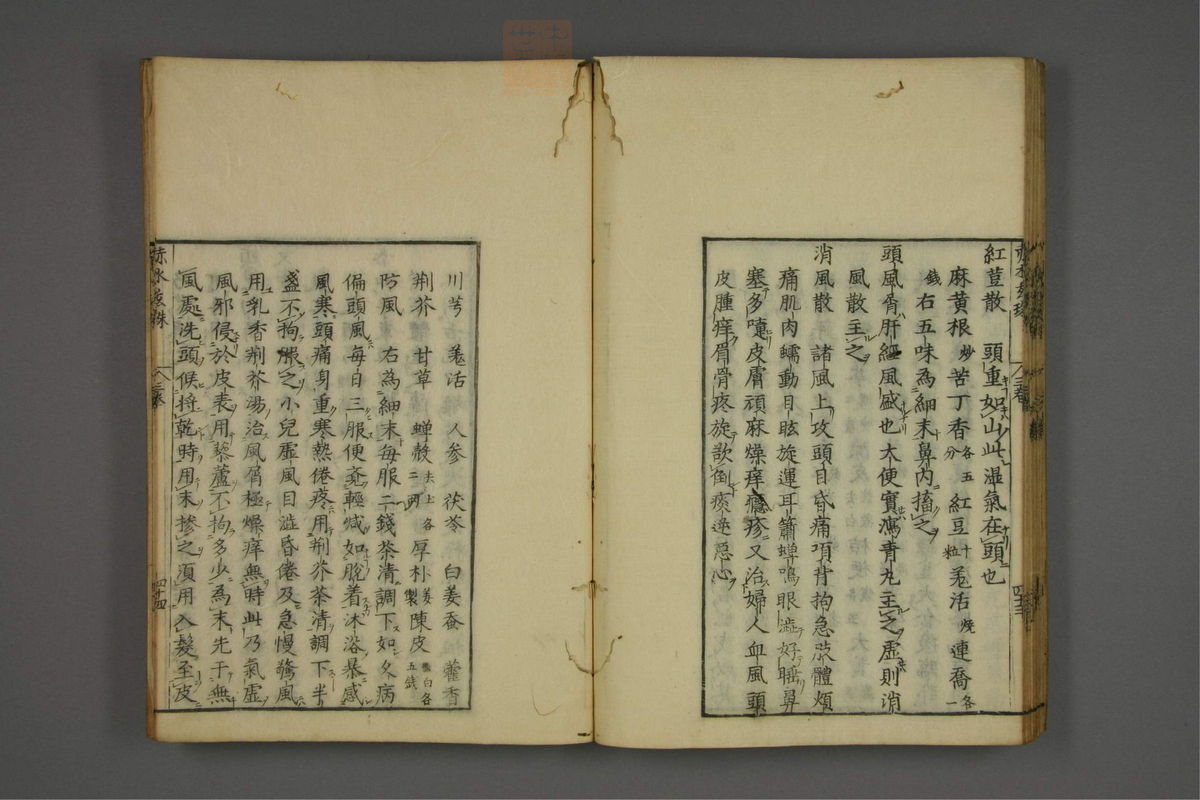 紅荳散　頭重如山此湿氣在頭也
麻黄根炒苦丁香各五分紅豆十粒羗活燒連喬各一
錢右五味為細末鼻内搐之
頭風屑肝經風盛也大便實瀉青丸主之虚則消
風散主之
消風散　諸風上攻頭目昏痛項背拘急肢體煩
痛肌肉蠕動目眩旋運耳簫蟬鳴眼澁好睡鼻
塞多嚏皮膚頑麻燥痒癮疹又治婦人血風頭
皮腫痒眉骨疼旋欲倒痰逆惡心
川芎　羗活　人参　茯苓　白姜蚕　藿香
荆芥　甘草　蝉殼去土各二两厚朴姜製陳皮去白各五錢
防風　右為細末每服二錢茶清調下如久病
偏頭風每日三服便覺輕减如脫着沐浴暴感
風寒頭痛身重寒熱倦疼用荆芥茶清調下半
盞不拘服之小兒虚風目澁昏倦及急慢驚風
用乳香荆芥湯治風屑極燥痒無時此乃氣虚
風邪侵於皮表用藜蘆不拘多少為末先于無
風處洗頭候将乾時用末摻之須用入髮至皮
赤水玄珠
八三卷
四十四